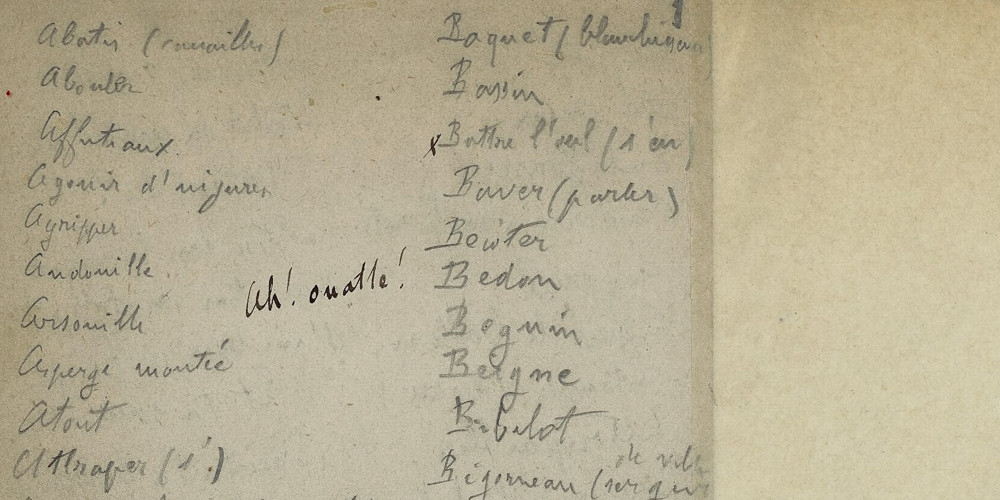 Abatis (canailles)
Abouler
Affutiaux
Agonir d'injures
Agripper
Andouille
Ah! ouatte!
Arsouille
Asperge montée
Atout
Attraper (s')
1
Baquet (blanchisseuse
Bassin
x Battre l'œil (s'en)
Baver (parler)
Becoter
Bedon
Beguin
Beigne
Bibelot
Bigorneau (sergent
de ville